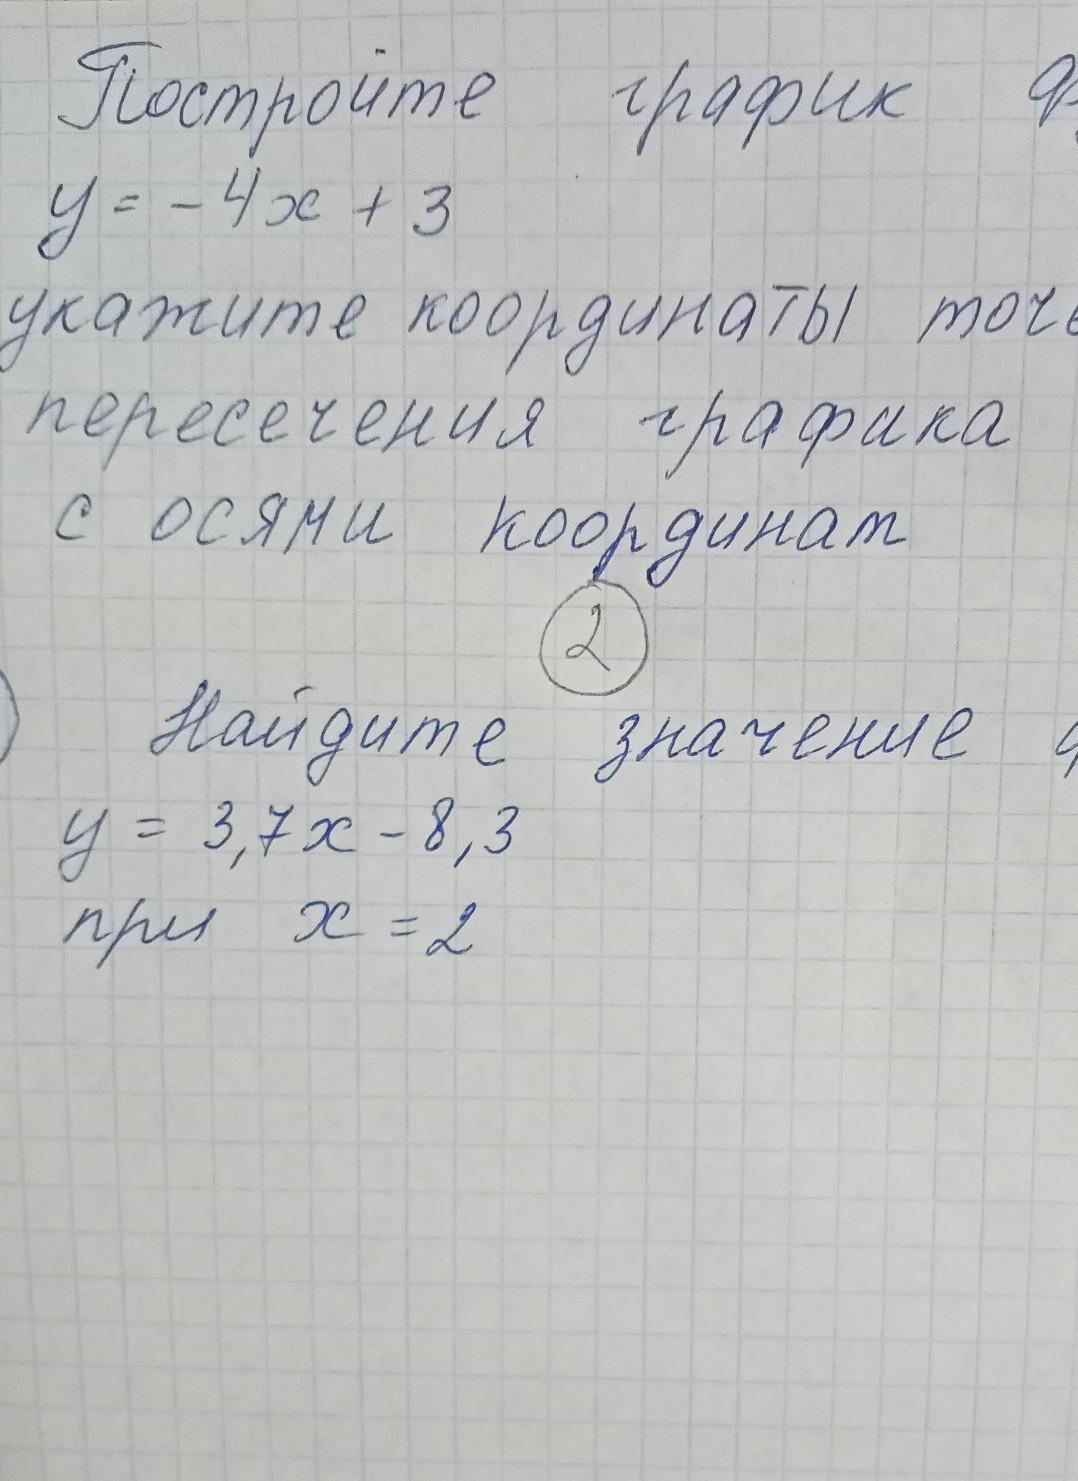 Постройте график
y = -4x + 3
укажите координаты
пересечения графика
с осями координат
2
Найдите значение
y = 3,7x - 8,3
при x = 2